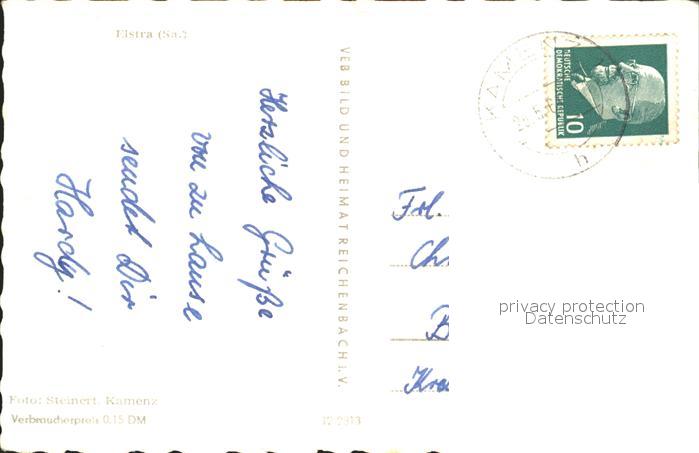 Elstra (Sa.)
Herzliche Grüße
von zu Hause
sendet Dir
Hardy!
VEB BILD UND HEIMAT REICHENBACH i. V.
DEUTSCHE
DEMOKRATISCHE REPUBLIK
10
KAMENZ
h
Frl.
Ch
B
Kre
privacy protection
Datenschutz
Foto: Steinert, Kamenz
Verbraucherpreis 0,15 DM